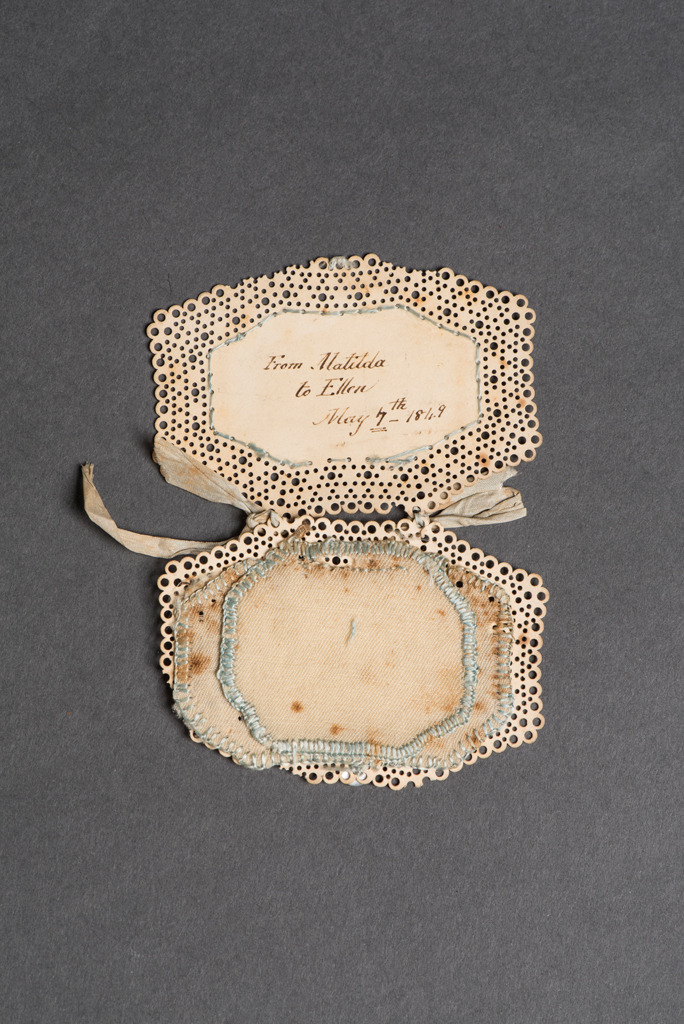 From Matilda
to Ellen
May 7th 1849